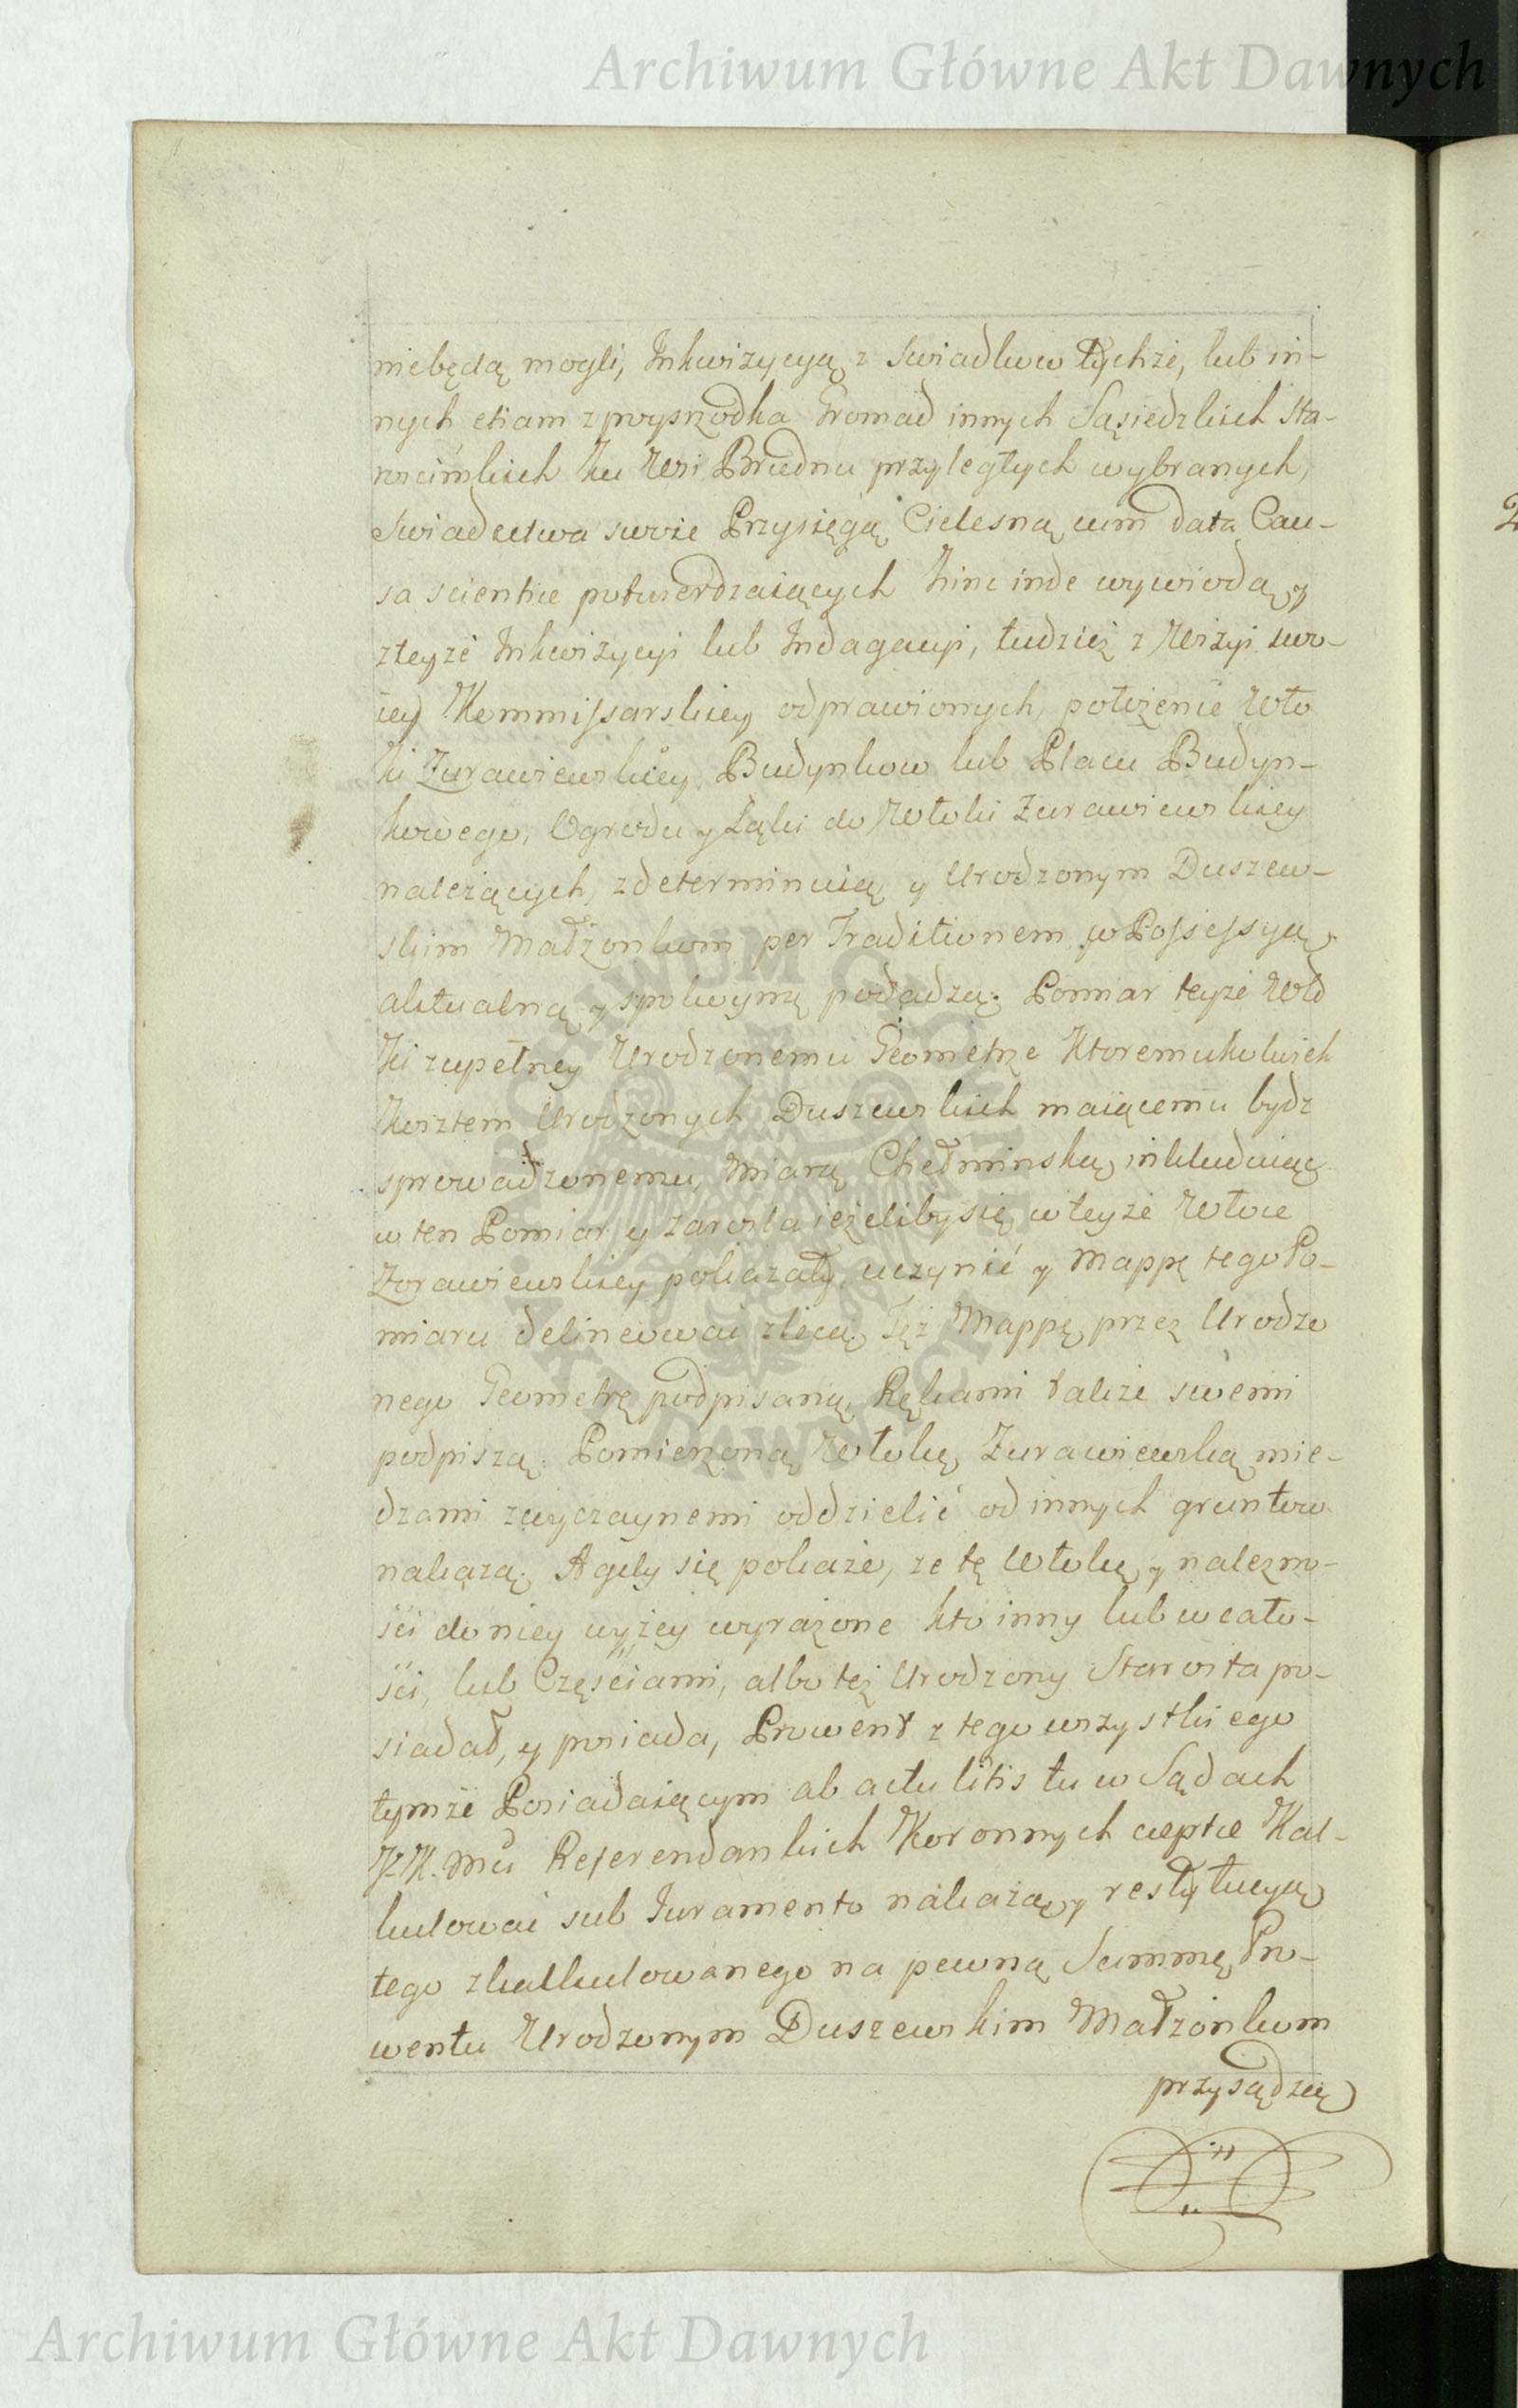 Archiwum Główne Akt Dawnych
niebędą mogli, Inkwizycyą z swiadkow tychże, lub in-
nych etiam zpoyszodka Gromad innych Sąsiedzkich Sta-
rościnskich ku Wsi Brudnu przyległych wybranych,
swiadectwa swoie Przysięgą Cielesną cum data Cau-
sa scientiae potwierdzaiących hinc inde wywiodą, y
zteyże Inkwizycyi lub Indagacyi, tudzież z Wizyi swo-
iey Kommissarskiey odprawionych, położenie Wło
ki Zurawiewskiey, Budynkow lub Placu Budyn-
kowego, Ogrodu y Łąki do Włoki Zurawiewskiey
należących, zdeterminuią y Urodzonym Duszew-
skim Małżonkom per Traditionem w Possessyą
aktualną y spokoyną podadzą. Pomiar teyże Wło
ki zupełney Urodzonemu Geometrze Ktoremukolwiek
kosztem Urodzonych Duszewskich maiącemu bydz
sprowadzonemu, Miarą Chełminską, inkluduiąc
w ten Pomiar y zarosla ieżeliby się w teyże Włoce
Zorawiewskiey pokazały, uczynić y Mappę tego Po-
miaru delineować zlecą. Tęż Mappę przez Urodzo
nego Geometrę podpisaną, Rękami także swemi
podpiszą. Pomienioną Włokę Zurawiewską mie-
dzami zwyczaynemi oddzielić od innych gruntow
nakażą. A gdy się pokaże, że tę Włokę y należno-
ści do niey wyżey wyrażone kto inny lub w cało-
ści, lub Częściami, albo też Urodzony Starosta po-
siadał, y posiada, Prowent z tego wszystkiego
tymże Posiadaiącym ab actu litis tu w Sądach
J. K. Mci Referendarskich Koronnych caeptae Kal-
kulować sub Juramento nakażą, y restytucyą
tego zkalkulowanego na pewną Summę Pro-
wentu Urodzonym Duszewskim Małżonkom
przysądzą
2
Archiwum Główne Akt Dawnych